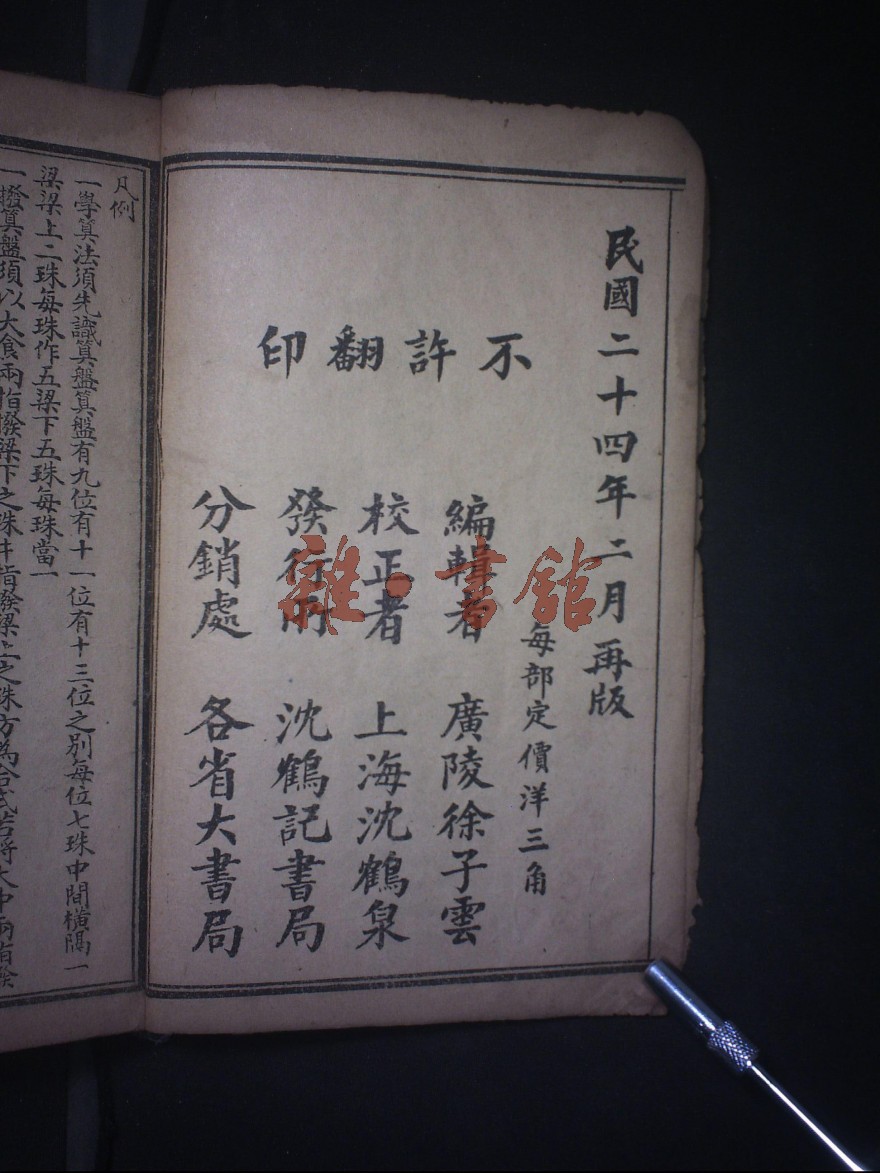 民國二十四年二月再版
不許翻印
每部定價洋三角
編輯者 廣陵徐子雲
校正者 上海沈鶴泉
發行所 沈鶴記書局
分銷處 各省大書局
凡例
一學算法須先識算盤算盤有九位有十一位有十三位之別每位七珠中間橫隔一
梁梁上二珠每珠作五梁下五珠每珠當一
一撥算盤須以大食兩指撥梁下之珠中指撥梁上之珠方為合式若將大中兩指撥
雜·書館